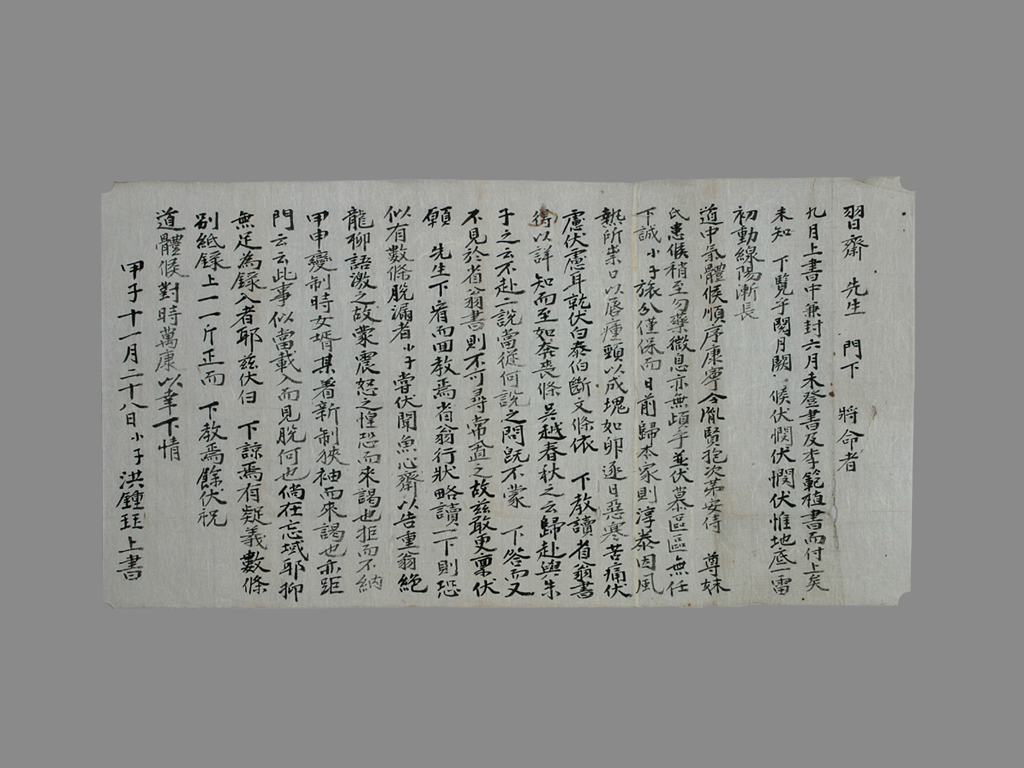 習齋 先生 門下 將命者
九月上書中兼封六月未登書及李範植書而付上矣
未知 下覽乎閱月闕 候伏憫伏憫伏惟地底一雷
初動線陽漸長
道中氣體候順序康寧令胤賢抱次第安侍 尊妹
氏患候稍至勿藥微息亦無頉乎並伏慕區區無任
下誠小子旅分僅保而日前歸本家則淳泰因風
熱所祟口以唇瘇頸以成塊如卵逐日惡寒苦痛伏
慮伏慮耳就伏白泰伯斷文條依 下教讀省翁書
得以詳知而至如奔喪條吳越春秋之云歸赴與朱
子之云不赴二說當從何說之問旣不蒙 下答而又
不見於省翁書則不可尋常置之故玆敢更稟伏
願 先生下眷而回教焉省翁行狀略讀一下則恐
似有數條脫漏者小子嘗伏聞魚心齋以告重翁絶
龍抑語激之故蒙震怒之惶恐而來謁也拒而不納
甲申變制時女壻某着新制狹袖而來謁也亦距
門云云此事似當載入而見脫何也倘在忘域耶抑
無足爲錄入者耶玆伏白 下諒焉有疑義數條
別紙錄上一一斤正而 下教焉餘伏祝
道體候對時萬康以幸下情
甲子十一月二十八日小子洪鍾 上書